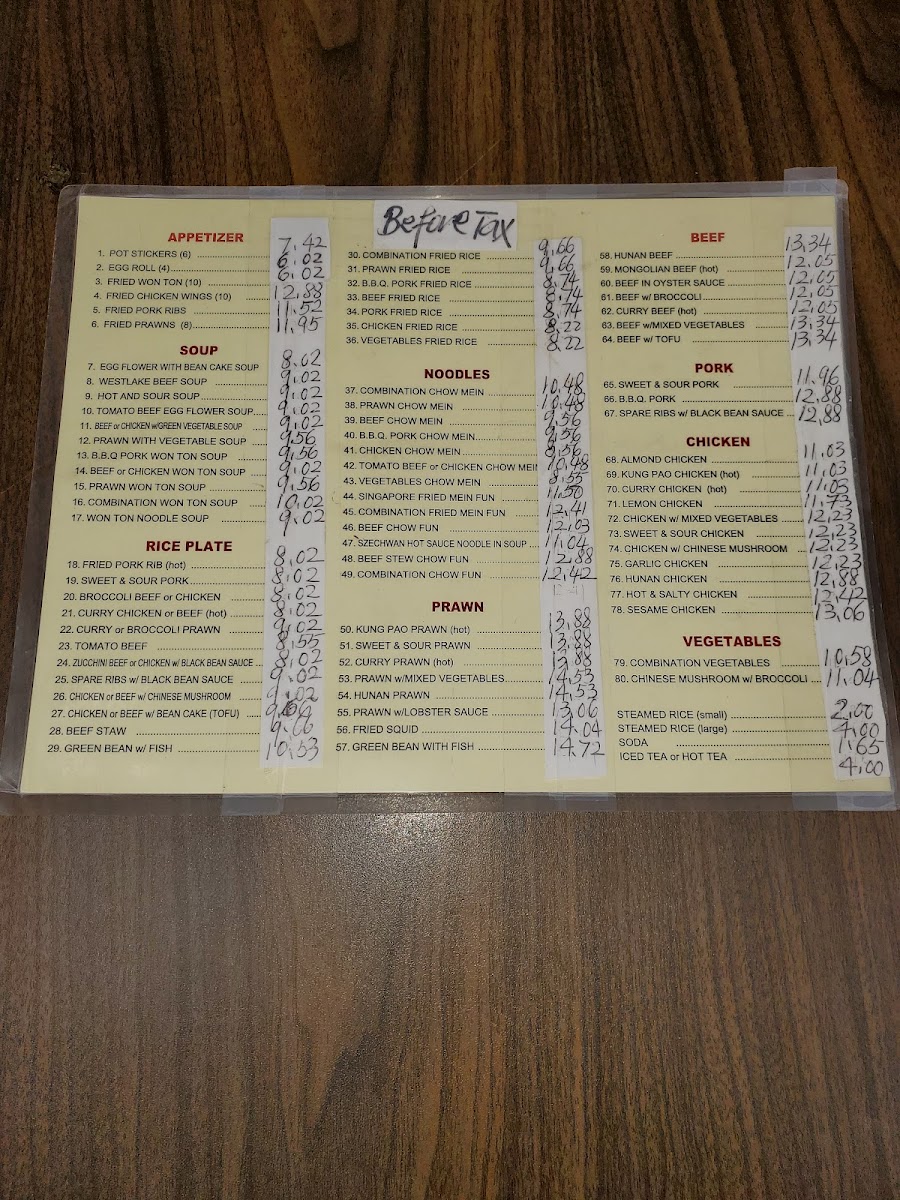 Before Tax
APPETIZER
1. POT STICKERS (6) 7.42
2. EGG ROLL (4) 6.02
3. FRIED WON TON (10) 6.02
4. FRIED CHICKEN WINGS (10) 12.88
5. FRIED PORK RIBS 11.52
6. FRIED PRAWNS (8) 11.95
SOUP
7. EGG FLOWER WITH BEAN CAKE SOUP 8.02
8. WESTLAKE BEEF SOUP 9.02
9. HOT AND SOUR SOUP 9.02
10. TOMATO BEEF EGG FLOWER SOUP 9.02
11. BEEF or CHICKEN w/GREEN VEGETABLE SOUP 9.02
12. PRAWN WITH VEGETABLE SOUP 9.56
13. B.B.Q PORK WON TON SOUP 9.56
14. BEEF or CHICKEN WON TON SOUP 9.02
15. PRAWN WON TON SOUP 9.56
16. COMBINATION WON TON SOUP 10.02
17. WON TON NOODLE SOUP 9.02
RICE PLATE
18. FRIED PORK RIB (hot) 8.02
19. SWEET & SOUR PORK 8.02
20. BROCCOLI BEEF or CHICKEN 8.02
21. CURRY CHICKEN or BEEF (hot) 8.02
22. CURRY or BROCCOLI PRAWN 9.02
23. TOMATO BEEF 8.55
24. ZUCCHINI BEEF or CHICKEN w/ BLACK BEAN SAUCE 8.02
25. SPARE RIBS w/ BLACK BEAN SAUCE 9.02
26. CHICKEN or BEEF w/ CHINESE MUSHROOM 9.02
27. CHICKEN or BEEF w/ BEAN CAKE (TOFU) 9.66
28. BEEF STAW 9.66
29. GREEN BEAN w/ FISH 10.53
30. COMBINATION FRIED RICE 9.66
31. PRAWN FRIED RICE 9.66
32. B.B.Q. PORK FRIED RICE 8.74
33. BEEF FRIED RICE 8.74
34. PORK FRIED RICE 8.74
35. CHICKEN FRIED RICE 8.22
36. VEGETABLES FRIED RICE 8.22
NOODLES
37. COMBINATION CHOW MEIN 10.48
38. PRAWN CHOW MEIN 10.48
39. BEEF CHOW MEIN 9.56
40. B.B.Q. PORK CHOW MEIN 9.56
41. CHICKEN CHOW MEIN 8.56
42. TOMATO BEEF or CHICKEN CHOW MEIN 10.48
43. VEGETABLES CHOW MEIN 8.55
44. SINGAPORE FRIED MEIN FUN 11.50
45. COMBINATION FRIED MEIN FUN 12.41
46. BEEF CHOW FUN 12.03
47. SZECHWAN HOT SAUCE NOODLE IN SOUP 11.04
48. BEEF STEW CHOW FUN 12.88
49. COMBINATION CHOW FUN 12.42
PRAWN
50. KUNG PAO PRAWN (hot) 13.88
51. SWEET & SOUR PRAWN 13.88
52. CURRY PRAWN (hot) 13.88
53. PRAWN w/MIXED VEGETABLES 14.53
54. HUNAN PRAWN 14.53
55. PRAWN w/LOBSTER SAUCE 13.06
56. FRIED SQUID 14.04
57. GREEN BEAN WITH FISH 14.72
BEEF
58. HUNAN BEEF 13.34
59. MONGOLIAN BEEF (hot) 12.05
60. BEEF IN OYSTER SAUCE 12.05
61. BEEF w/ BROCCOLI 12.05
62. CURRY BEEF (hot) 12.05
63. BEEF w/MIXED VEGETABLES 13.34
64. BEEF w/ TOFU 13.34
PORK
65. SWEET & SOUR PORK 11.96
66. B.B.Q. PORK 12.88
67. SPARE RIBS w/ BLACK BEAN SAUCE 12.88
CHICKEN
68. ALMOND CHICKEN 11.03
69. KUNG PAO CHICKEN (hot) 11.03
70. CURRY CHICKEN (hot) 11.03
71. LEMON CHICKEN 11.73
72. CHICKEN w/ MIXED VEGETABLES 12.23
73. SWEET & SOUR CHICKEN 12.23
74. CHICKEN w/ CHINESE MUSHROOM 12.23
75. GARLIC CHICKEN 12.23
76. HUNAN CHICKEN 12.88
77. HOT & SALTY CHICKEN 12.42
78. SESAME CHICKEN 13.06
VEGETABLES
79. COMBINATION VEGETABLES 10.58
80. CHINESE MUSHROOM w/ BROCCOLI 11.04
STEAMED RICE (small) 2.00
STEAMED RICE (large) 4.00
SODA 1.65
ICED TEA or HOT TEA 4.00